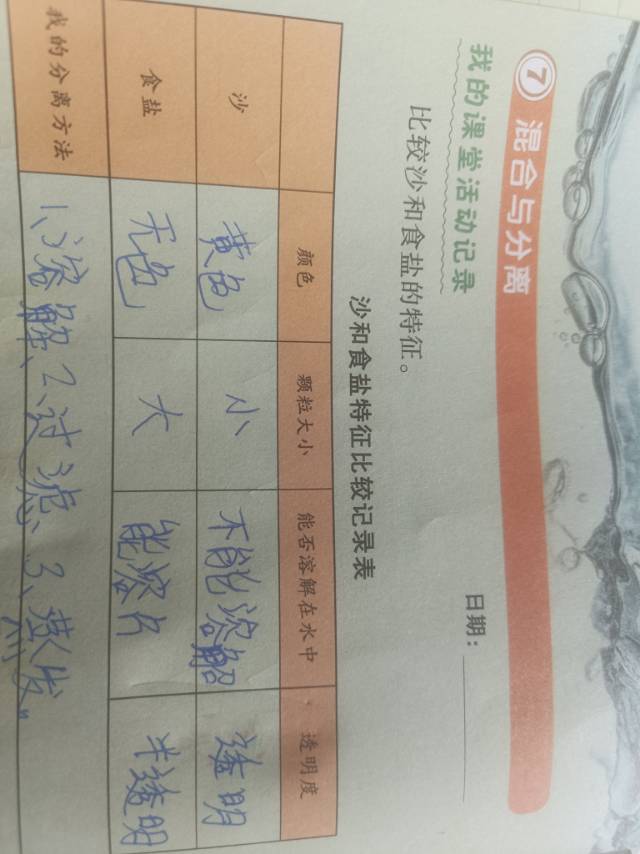 ⑦ 混合与分离
我的课堂活动记录
日期：
比较沙和食盐的特征。
沙和食盐特征比较记录表
颜色 颗粒大小 能否溶解在水中 透明度
沙 黄色 小 不能溶解 透明
食盐 无色 大 能溶 半透明
我的分离方法 1、溶解、2、过滤、3、蒸发。